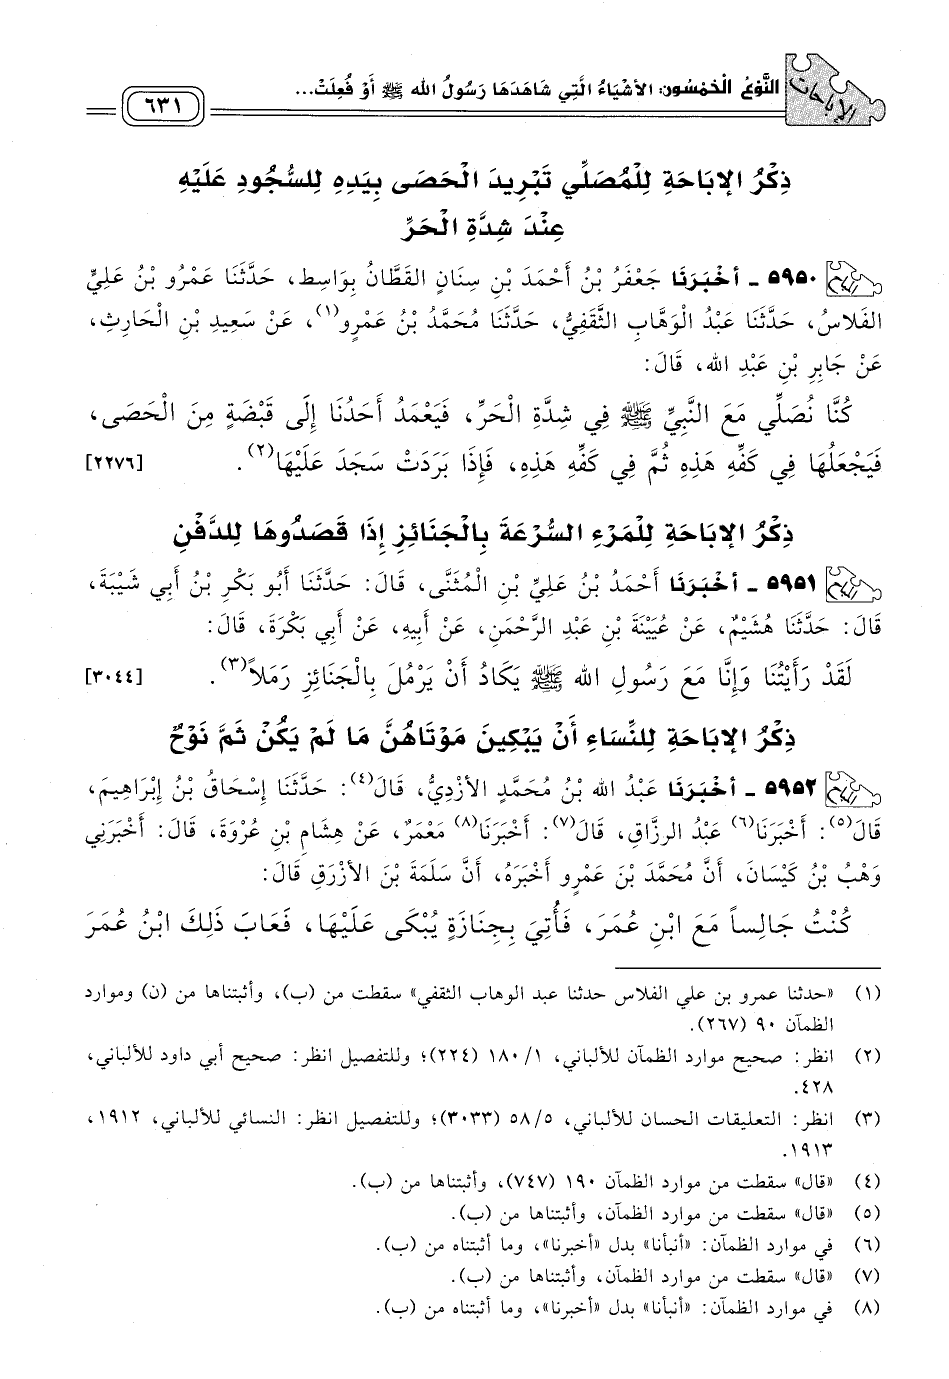 الإباحات
النَّوْعُ الْخَمْسُون: الأشْيَاءُ الَّتِي شَاهَدَهَا رَسُولُ الله ﷺ أَوْ فُعِلَتْ...
٦٣١
ذِكْرُ الإبَاحَةِ لِلْمُصَلِّي تَبْرِيدَ الْحَصَى بِيَدِهِ لِلسُّجُودِ عَلَيْهِ
عِنْدَ شِدَّةِ الْحَرِّ
٥٩٥٠ ـ أَخْبَرَنَا جَعْفَرُ بْنُ أَحْمَدَ بْنِ سِنَانٍ القَطَّانُ بِوَاسِط، حَدَّثَنَا عَمْرُو بْنُ عَلِيٍّ
الفَلاسُ، حَدَّثَنَا عَبْدُ الْوَهَّابِ الثَّقَفِيُّ، حَدَّثَنَا مُحَمَّدُ بْنُ عَمْرٍو(١)، عَنْ سَعِيدِ بْنِ الْحَارِثِ،
عَنْ جَابِرِ بْنِ عَبْدِ الله، قَالَ:
كُنَّا نُصَلِّي مَعَ النَّبِيِّ ﷺ فِي شِدَّةِ الْحَرِّ، فَيَعْمَدُ أَحَدُنَا إِلَى قَبْضَةٍ مِنَ الْحَصَى،
فَيَجْعَلُهَا فِي كَفِّهِ هَذِهِ ثُمَّ فِي كَفِّهِ هَذِهِ، فَإِذَا بَرَدَتْ سَجَدَ عَلَيْهَا(٢). [٢٢٧٦]
ذِكْرُ الإبَاحَةِ لِلْمَرْءِ السُّرْعَةَ بِالْجَنَائِزِ إِذَا قَصَدُوهَا لِلدَّفْنِ
٥٩٥١ ـ أَخْبَرَنَا أَحْمَدُ بْنُ عَلِيِّ بْنِ الْمُثَنَّى، قَالَ: حَدَّثَنَا أَبُو بَكْرِ بْنُ أَبِي شَيْبَةَ،
قَالَ: حَدَّثَنَا هُشَيْمٌ، عَنْ عُيَيْنَةَ بْنِ عَبْدِ الرَّحْمَنِ، عَنْ أَبِيهِ، عَنْ أَبِي بَكْرَةَ، قَالَ:
لَقَدْ رَأَيْتُنَا وَإِنَّا مَعَ رَسُولِ الله ﷺ يَكَادُ أَنْ يَرْمُلَ بِالْجَنَائِزِ رَمَلاً(٣). [٣٠٤٤]
ذِكْرُ الإبَاحَةِ لِلنِّسَاءِ أَنْ يَبْكِينَ مَوْتَاهُنَّ مَا لَمْ يَكُنْ ثَمَّ نَوْحٌ
٥٩٥٢ ـ أَخْبَرَنَا عَبْدُ الله بْنُ مُحَمَّدٍ الأزْدِيُّ، قَالَ(٤): حَدَّثَنَا إِسْحَاقُ بْنُ إِبْرَاهِيمَ،
قَالَ(٥): أَخْبَرَنَا(٦) عَبْدُ الرزَّاقِ، قَالَ(٧): أَخْبَرَنَا(٨) مَعْمَرٌ، عَنْ هِشَامِ بْنِ عُرْوَةَ، قَالَ: أَخْبَرَنِي
وَهْبُ بْنُ كَيْسَانَ، أَنَّ مُحَمَّدَ بْنَ عَمْرٍو أَخْبَرَهُ، أَنَّ سَلَمَةَ بْنَ الأزْرَقِ قَالَ:
كُنْتُ جَالِساً مَعَ ابْنِ عُمَرَ، فَأُتِيَ بِجِنَازَةٍ يُبْكَى عَلَيْهَا، فَعَابَ ذَلِكَ ابْنُ عُمَرَ
(١) «حدثنا عمرو بن علي الفلاس حدثنا عبد الوهاب الثقفي» سقطت من (ب)، وأثبتناها من (ن) وموارد
الظمآن ٩٠ (٢٦٧).
(٢) انظر: صحيح موارد الظمآن للألباني، ١/ ١٨٠ (٢٢٤)؛ وللتفصيل انظر: صحيح أبي داود للألباني،
٤٢٨.
(٣) انظر: التعليقات الحسان للألباني، ٥/ ٥٨ (٣٠٣٣)؛ وللتفصيل انظر: النسائي للألباني، ١٩١٢،
١٩١٣.
(٤) «قال» سقطت من موارد الظمآن ١٩٠ (٧٤٧)، وأثبتناها من (ب).
(٥) «قال» سقطت من موارد الظمآن، وأثبتناها من (ب).
(٦) في موارد الظمآن: «أنبأنا» بدل «أخبرنا»، وما أثبتناه من (ب).
(٧) «قال» سقطت من موارد الظمآن، وأثبتناها من (ب).
(٨) في موارد الظمآن: «أنبأنا» بدل «أخبرنا»، وما أثبتناه من (ب).